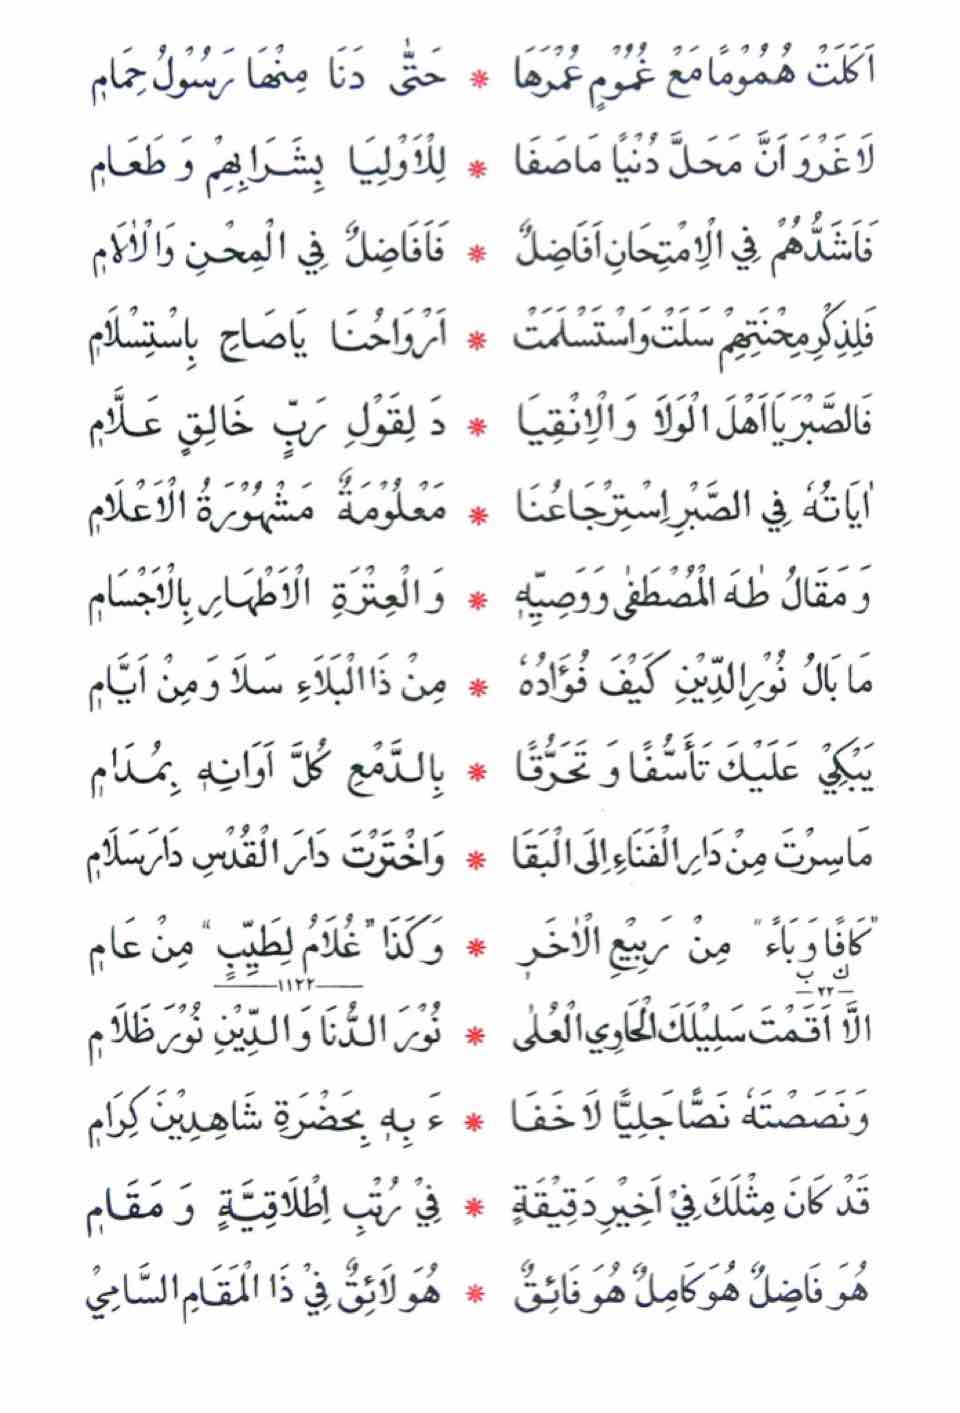 اَكَلَتْ هُمُوْمًا مَعْ غُمُوْمٍ عُمْرَهَا * حَتّٰى دَنَا مِنْهَا رَسُوْلُ حِمَامٖ
لَا غَرْوَ اَنَّ مَحَلَّ دُنْيًا مَا صَفَا * لِلْاَوْلِيَا بِشَرَابِهِمْ وَ طَعَامٖ
فَاَشَدُّهُمْ فِي الْاِمْتِحَانِ اَفَاضِلٌ * فَاَفَاضِلٌ فِي الْمِحْنِ وَالْاٰلَامٖ
فَلِذِكْرِ مِحْنَتِهِمْ سَلَتْ وَاسْتَسْلَمَتْ * اَرْوَاحُنَا يَاصَاحِ بِاسْتِسْلَامٖ
فَالصَّبْرَ يَا اَهْلَ الْوَلَا وَ الْاِنْقِيَا * دَ لِقَوْلِ رَبٍّ خَالِقٍ عَلَّامٖ
اٰيَاتُهٗ فِي الصَّبْرِ اِسْتِرْجَاعُنَا * مَعْلُوْمَةٌ مَشْهُوْرَةُ الْاَعْلَامٖ
وَ مَقَالُ طٰهَ الْمُصْطَفٰى وَ وَصِيِّهٖ * وَ الْعِتْرَةِ الْاَطْهَارِ بِالْاَجْسَامٖ
مَا بَالُ نُوْرِ الدِّيْنِ كَيْفَ فُؤَادُهٗ * مِنْ ذَا الْبَلَاءِ سَلَا وَ مِنْ اَيَّامٖ
يَبْكِيْ عَلَيْكَ تَأَسُّفًا وَ تَحَرُّقًا * بِالدَّمْعِ كُلَّ اَوَانِهٖ بِمُدَامٖ
مَا سِرْتَ مِنْ دَارِ الْفَنَاءِ اِلَى الْبَقَا * وَاخْتَرْتَ دَارَ الْقُدْسِ دَارَ سَلَامٖ
"كَافًا وَ بَاءً" مِنْ رَبِيْعِ الْاٰخَرِ * وَ كَذَا "غُلَامُ لِطَيِّبٍ" مِنْ عَامٖ
ك ب
٢٢ ١١٢٢
الَّا اَقَمْتَ سَلِيْلَكَ الْحَاوِي الْعُلٰى * نُوْرَ الدُّنَا وَ الدِّيْنِ نُوْرَ ظَلَامٖ
وَنَصَصْتَهٗ نَصًّا جَلِيًّا لَا خَفَا * ءَ بِهٖ بِحَضْرَةِ شَاهِدِيْنَ كِرَامٖ
قَدْ كَانَ مِثْلَكَ فِيْ اَخِيْرِ دَقِيْقَةٍ * فِيْ رُتْبِ اِطْلَاقِيَّةٍ وَ مَقَامٖ
هُوَ فَاضِلٌ هُوَ كَامِلٌ هُوَ فَائِقٌ * هُوَ لَائِقٌ فِيْ ذَا الْمَقَامِ السَّامِيْ